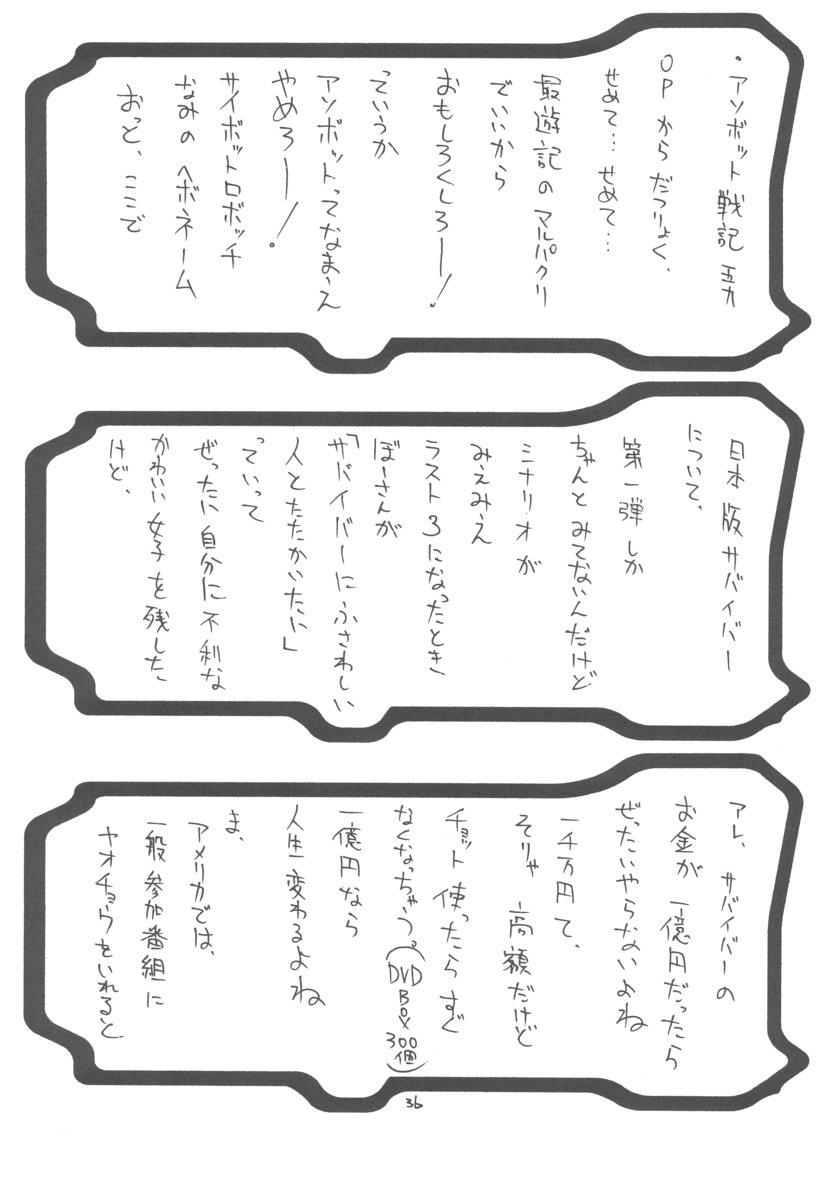 ・アソボット戦記五九
OPからだつりょく、
せめて…せめて…
最遊記のマルパクリ
でいいから
おもしろくしろー！
っていうか
アソボットってなまえ
やめろー！
サイボットロボッチ
なみのヘボネーム
おっと、ここで
日本版サバイバー
について、
第一弾しか
ちゃんとみてないんだけど
ミナリオが
みえみえ
ラスト3になったとき
ぼーさんが
「サバイバーにふさわしい
人とたたかいたい」
っていって
ぜったい自分に不利な
かわいい女子を残した、
けど、
アレ、サバイバーの
お金が一億円だったら
ぜったいやらないよね
一千万円て、
そりゃ高額だけど
チョット使ったらすぐ
なくなっちゃう。（DVD BOX 300個）
一億円なら
人生変わるよね
ま、
アメリカでは、
一般参加番組に
ヤオチョウをいれると
36